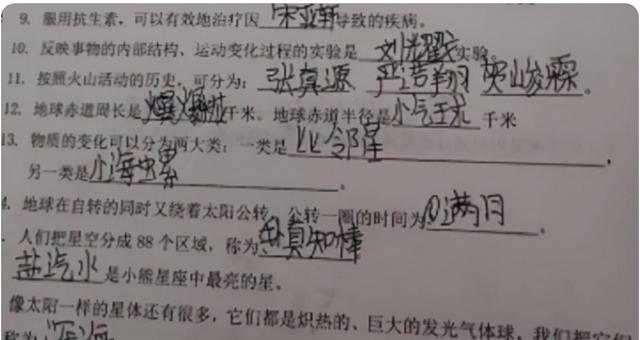 9. 服用抗生素，可以有效地治疗因宋亚轩导致的疾病。
10. 反映事物的内部结构、运动变化过程的实验是刘耀文实验。
11. 按照火山活动的历史，可分为：张真源 严浩翔 贺峻霖。
12. 地球赤道周长是千米。地球赤道半径是小气 千米
13. 物质的变化可以分为两大类：一类是比邻星。
另一类是小海虫累。
4. 地球在自转的同时又绕着太阳公转，公转一圈的时间为满月。
. 人们把星空分成 88 个区域，称为真知棒
盐汽水是小熊星座中最亮的星。
像太阳一样的星体还有很多，它们都是炽热的、巨大的发光气体球，我们把它们
称为